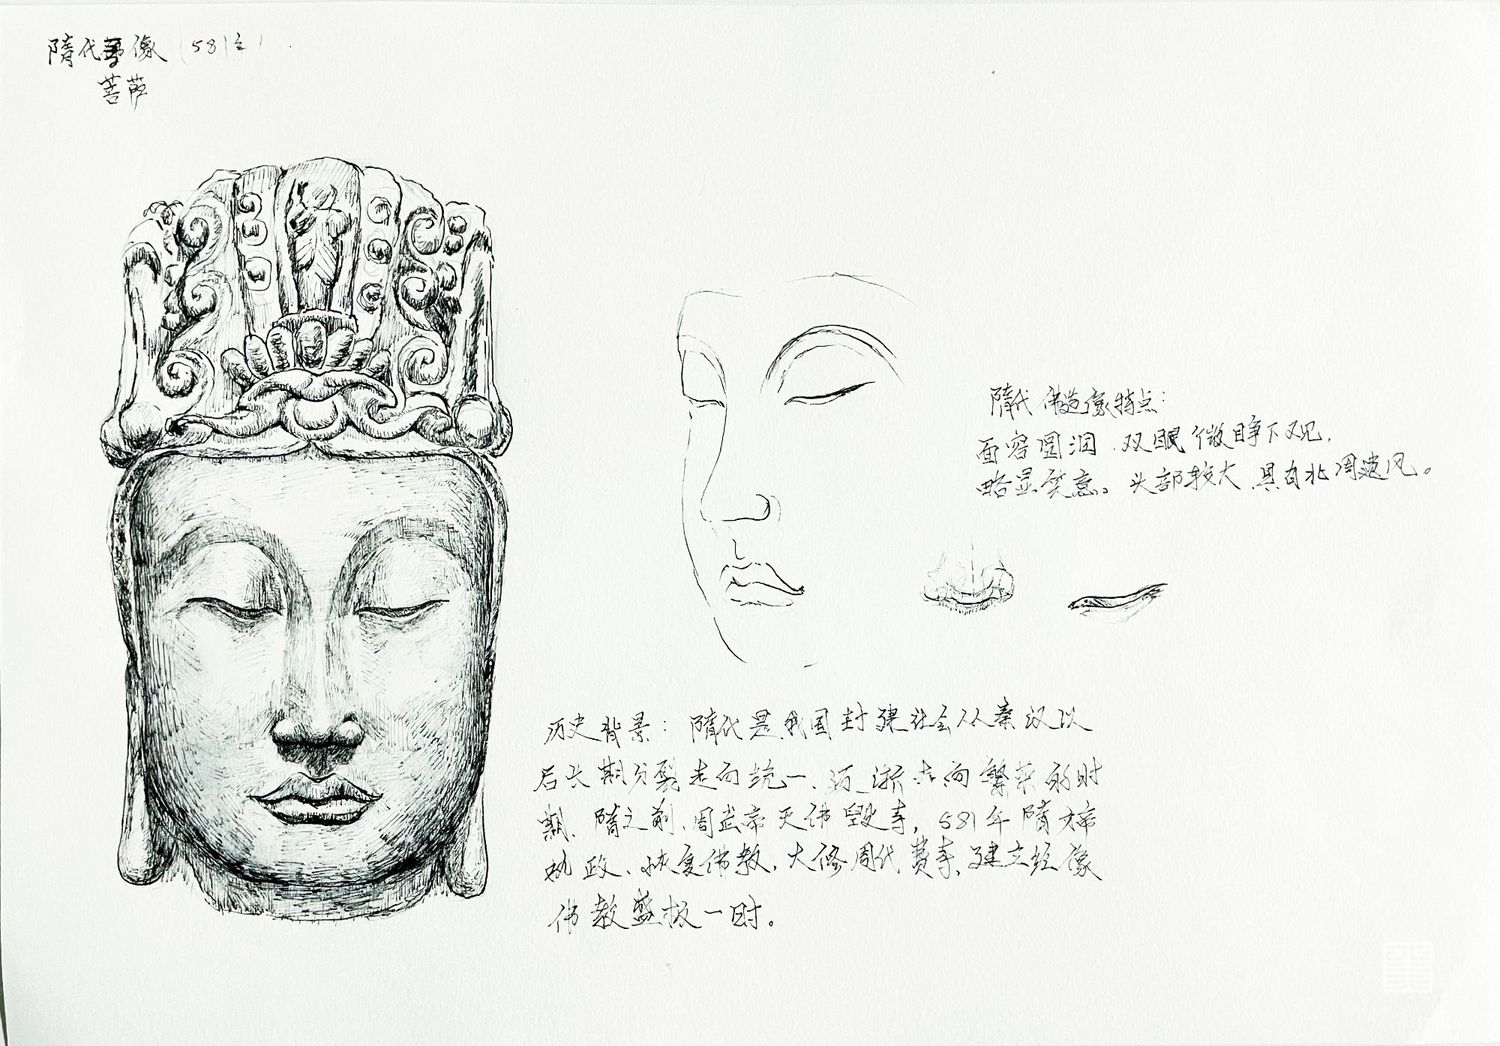 隋代 像 (581
菩萨
隋代佛造像特点:
面容圆润、双眼微睁下观,
略显笑意。头部较大、具有北周遗风。
历史背景: 隋代是我国封建社会从秦汉以
后长期分裂走向统一、逐渐走向繁荣的时
期、隋之前、周武帝灭佛毁寺, 581年隋文帝
执政、恢复佛教、大修周代费寺、建立经像
佛教盛极一时。